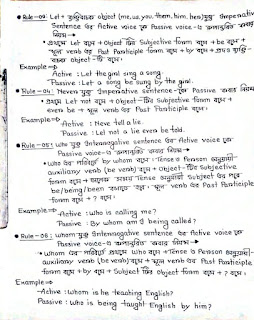 • Rule-03: Let + ব্যক্তিবাচক object (me, us, you, them, him, her) যুক্ত Imperative
Sentence এর Active voice কে Passive voice-এ রূপান্তর করার
নিয়ম →
→ প্রথমে Let বসে + Object টির Subjective form বসে + be বসে +
মূল verb এর Past Participle form বসে + by বসে +
object-টি বসে
Example ⇒
Active : Let the girl sing a song.
Passive : Let a song be sung by the girl.
• Rule-04: Never যুক্ত Imperative sentence-কে Passive করার নিয়ম
→ প্রথমে Let not বসে + Object-টির Subjective form বসে +
be বসে + মূল verb এর Past Participle form বসে।
Example ⇒
Active : Never tell a lie.
Passive : Let not a lie even be told.
• Rule-05: who যুক্ত Interrogative sentence এর Active voice কে
Passive voice-এ রূপান্তর করার নিয়ম →
→ who এর পরিবর্তে By whom বসে + Tense ও Person অনুযায়ী
auxiliary verb (be verb) বসে + Object টির Subjective
form বসে + Tense অনুযায়ী Subject এর পর
be/being/been বসে + মূল verb এর Past Participle
form বসে + ? বসে।
Example ⇒
-Active : Who is calling me?
-Passive : By whom am I being called?
• Rule-06: whom যুক্ত Interrogative sentence এর Active voice কে
Passive voice-এ রূপান্তর করার নিয়ম →
→ Whom এর পরিবর্তে Who বসে + Tense ও Person অনুযায়ী
auxiliary verb (be verb) বসে + মূল verb এর Past Participle
form বসে + by বসে + Subject টির Object form বসে + ? বসে।
Example ⇒
-Active : Whom is he teaching English?
Passive : Who is being taught English by him?